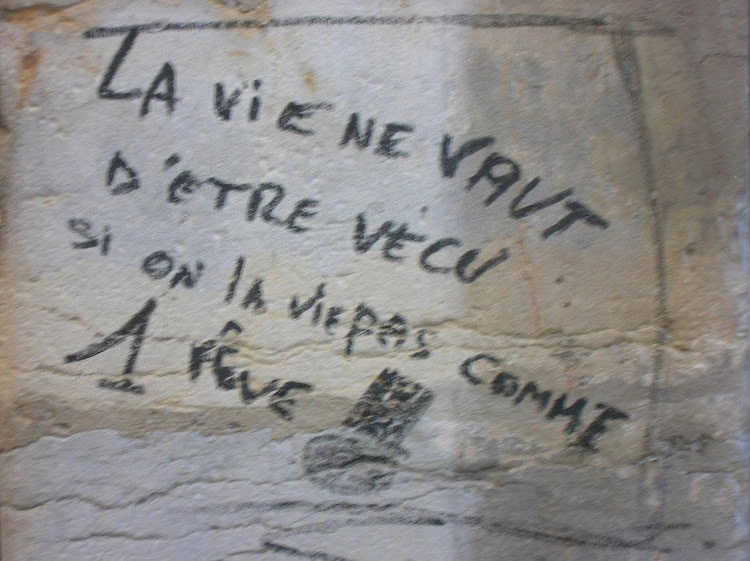 LA ViE NE VAUT
D'ETRE VÉCU
Si ON lA ViE PAS COMME
1 RÊVE